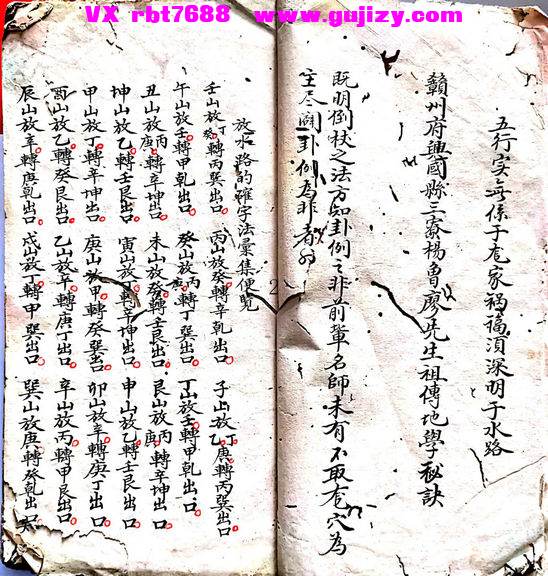 VX rbt7688 www.gujizy.com
五行实无係于宅家祸福須深明于水路
贛州府興國縣三寮楊曾廖先生祖傳地學秘訣
既明倒杖之法方知卦例之非前輩名師未有不取宅穴為
主尽闢卦例為非者
放水路的確字法彙集便覽
壬山放丁癸轉丙巽出口 丙山放癸轉辛乾出口 子山放丁庚轉丙巽出口
午山放壬轉甲乾出口 癸山放丙庚轉丁巽出口 丁山放壬轉甲乾出口
丑山放丙庚轉辛坤出口 未山放癸轉壬艮出口 艮山放丙庚轉辛坤出口
坤山放乙轉壬艮出口 寅山放轉辛坤出口 申山放乙轉壬艮出口
甲山放丁轉辛坤出口 庚山放甲轉癸巽出口 卯山放辛轉庚丁出口
酉山放乙轉癸艮出口 乙山放辛轉庚丁出口 辛山放丙轉甲艮出口
辰山放辛轉庚出口 戌山放丁轉甲巽出口 巽山放庚轉癸乾出口